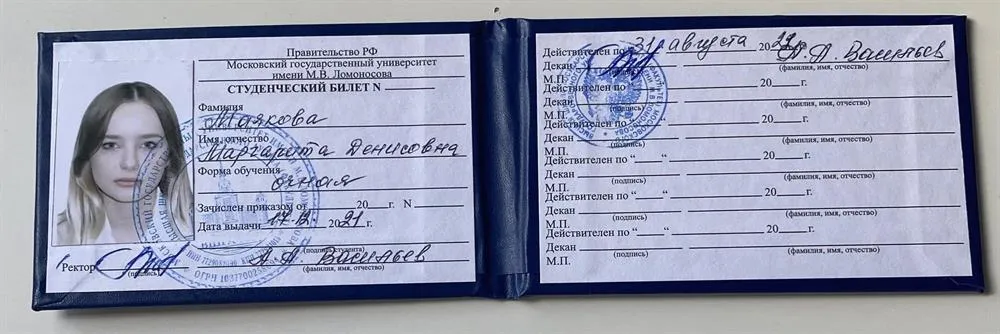 Правительство РФ
Московский государственный университет
имени М.В. Ломоносова
СТУДЕНЧЕСКИЙ БИЛЕТ N
Фамилия
Маякова
Имя, отчество
Маргарита Денисовна
Форма обучения
очная
Зачислен приказом от 20 г. N
Дата выдачи 17.12. 2021 г.
(подпись студента)
Ректор А. А. Васильев
(подпись) (фамилия, имя, отчество)
Действителен по 31 августа 20 г. А. А. Васильев
Декан
(фамилия, имя, отчество)
М.П.
Действителен по 20 г.
Декан
(подпись) (фамилия, имя, отчество)
М.П.
Действителен по 20 г.
Декан
(подпись) (фамилия, имя, отчество)
М.П.
Действителен по “ “ 20 г.
Декан
(подпись) (фамилия, имя, отчество)
М.П.
Действителен по “ “ 20 г.
Декан
(подпись) (фамилия, имя, отчество)
М.П.
Действителен по “ “ 20 г.
Декан
(подпись) (фамилия, имя, отчество)
М.П.